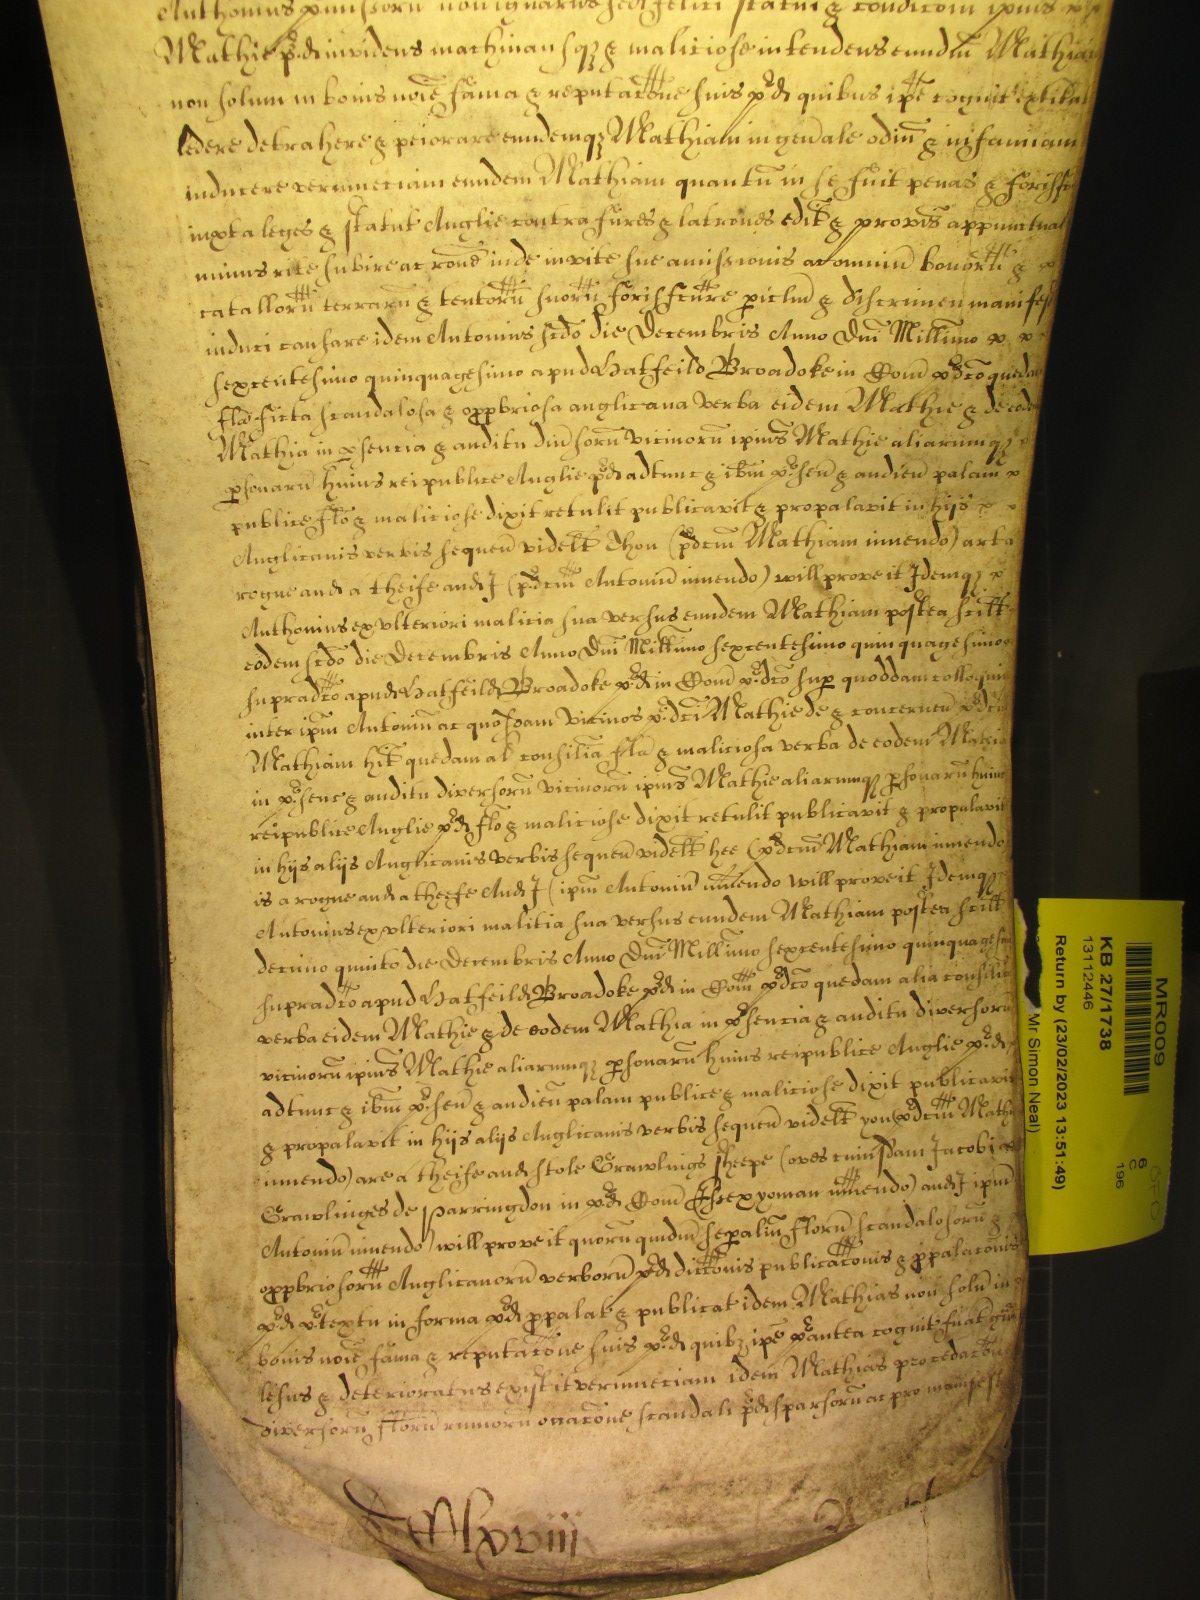 Anthonius p̱missorū non ignarus sed felici statui & condiconi ip̄ius
Mathie p̱d invidens machinansq̨ & maliciose intendens eundm̄ Mathiam
non solum in bonis noīe fama & reputac̄one suis p̱d quibus ip̄e cognit extitit
ledere detrahere & peiorare eundemq̨ Mathiam in gen̄ale odiū & infamiam
inducere verumeciam eundem Mathiam quantū in se fuit penas & forisf
iuxta leges & statut Anglie contra fures & latrones edit & provis appunctuat
minus rite subire ac rōne inde in vite sue amissionis ac omniū bonorū &
catallorū terrarū & tentorū suorū forisfcure p̱iclm̄ & discrimen manifest
induci causare idem Antonius scdo die Decembris Anno Dn̄i Millimo
sexcentesimo quinquagesimo apud Hatfeild Broadoke in Com̄ p̱dco quedam
fl̄a ficta scandalosa & opp̱briosa anglicana verba eidem Mathie & de eodem
Mathia in p̱sencia & auditu div̄sorū vicinorū ip̄ius Mathie aliarumq̨
p̱sonarū huius reipublice Anglie p̱d adtunc & ibm̄ p̱sen̄ & audien̄ palam
publice fl̄o & maliciose dixit retulit publicavit & propalavit in hijs
Anglicanis verbis sequen̄ videlt Thou (p̱dcm̄ Mathiam innuendo) art a
rogue and a theife and I (p̱dcm̄ Antoniū innuendo) will prove it Idemq̨
Anthonius ex ulteriori malicia sua versus eundem Mathiam postea scilt
eodem scdo die Decembris Anno Dn̄i Millimo sexcentesimo quinquagesimo
supradc̄o apud Hatfeild Broadoke p̱d in Com̄ p̱dco sup̱ quoddam colloquiū
inter ip̄m Antoniū ac quosdam vicinos p̱dci Mathie de & concernen̄ p̱dcm̄
Mathiam hit quedam al consilia fl̄a & maliciosa verba de eodem Mathia
in p̱senc & auditu diversorū vicinorū ip̄ius Mathie aliarumq̨ p̱sonarū huius
reipublice Anglie p̱d fl̄o & maliciose dixit retulit publicavit & propalavit
in hijs alijs Anglicanis verbis sequen̄ videlt hee (p̱dcm̄ Mathiam innuendo
is a rogue and a theefe And I (ip̄m Antoniū innuendo will prove it Idemq̨
Antonius ex ulteriori malitia sua versus eundem Mathiam postea scilt
decimo quinto die Decembris Anno Dn̄i Millimo sexcentesimo quinquagesimo
supradc̄o apud Hatfeild Broadoke p̱d in Com̄ p̱dco quedam alia consilia
verba eidem Mathie & de eodem Mathia in p̱sencia & auditu diversorū
vicinorū ip̄ius Mathie aliarumq̨ p̱sonarū huius reipublice Anglie p̱d
adtunc & ibm̄ p̱sen̄ & audien̄ palam publice & maliciose dixit publicavit
& propalavit in hijs alijs Anglicanis verbis sequen̄ videlt you (p̱dcm̄ Mathiam
innuendo) are a theife and stole Crawlings sheepe (oves cuiusdam Jacobi
Crawlinges de Parringdon in p̱d Com̄ Essex yoman innuendo) and I ip̄m
Antoniū innuendo) will prove it quorū quidm̄ sep̱aliū fl̄orū scandalosorū &
opp̱briosorū Anglicanorū verborū p̱d dicc̄onis publicac̄onis & p̱palac̄onis
p̱d p̱textu in forma p̱d p̱palat & publicat idem Mathias non solū in
bonis noīe fama & reputac̄one suis p̱d quibz ip̄e p̱antea cognit fuat
lesus & deterioratus existit verumeciam idem Mathias
diversorū fl̄orū rumorū occac̄one scandali p̱d sparsorū ac pro manifest
CClxviii
MR009
KB 27/1738
13112446
Return by (23/02/2023 13:51:49)
Mr Simon Neal)
6
C
196